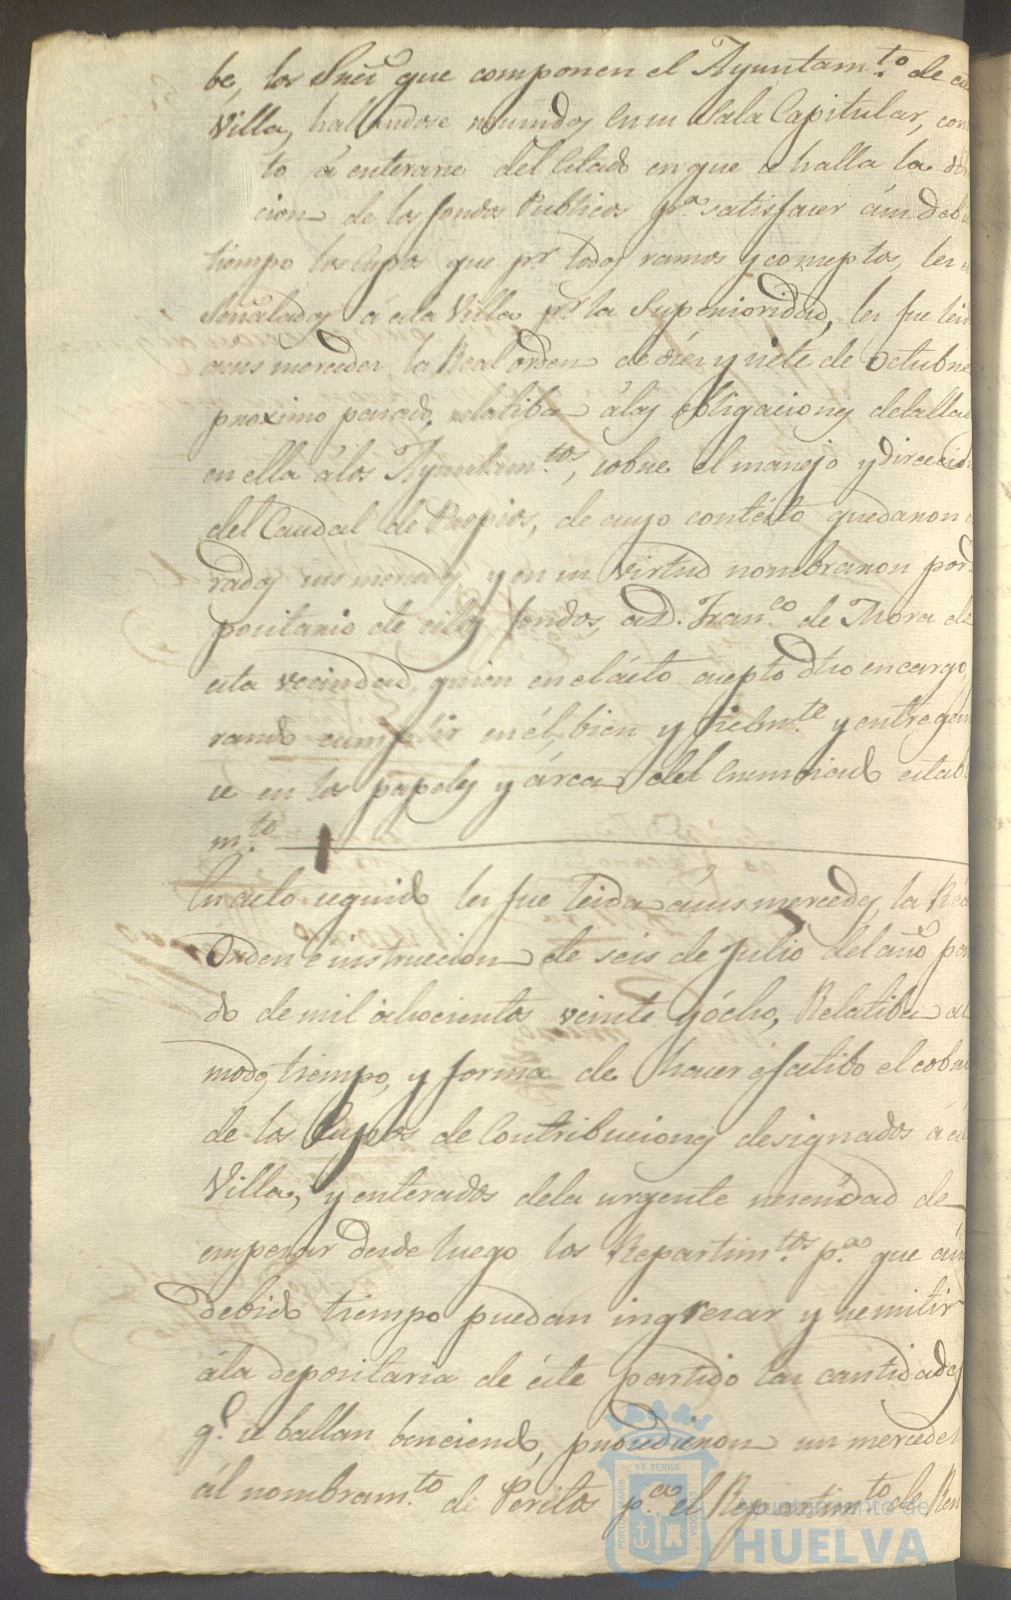 be, los Sres que componen el Ayuntam.to de es
Villa, hallandose reunidos en su Sala Capitular, con
to á enterarse del Estado en que se halla la
cion de los fondos Publicos p.a satisfacer á su deb
tiempo los Cupos que p.r todos ramos y conceptos, les
Señalados á esta Villa p.r la Superioridad, les fue lei
a sus mercedes la Real orden de diez y siete de Octubre
proximo pasado, relatiba á las obligaciones detallad
en ella á los Ayuntam.tos, sobre el manejo y direccion
del Caudal de Propios, de cuyo contesto quedaron
rados sus mercedes, y en su virtud nombraron por D
positario de dhos fondos, a D. Fran.co de Mora de
esta vecindad, quien en el ácto acepto dho encargo,
rando cumplir en él, bien y fielm.te y entregan
se en los papeles y árca del enunciado estab
m.to
En acto seguido les fue leida á sus mercedes, la Rea
Orden e instruccion de seis de Julio del año pa
do de mil óchocientos veinte y ócho, Relatiba al
modo, tiempo, y forma de hacer efectibo el cobr
de los Cupos de Contribuciones designados á es
Villa, y enterados de la urgente necesidad de
empesar desde luego los Repartim.tos p.a que á su
debido tiempo puedan ingresar y remitir
á la depositaria de éste partido las cantidades
q.e se hallan benciendo, procedieron sus mercedes
ál nombram.to de Peritos p.a el Repartim.to de Ren
ayuntamiento de
HUELVA